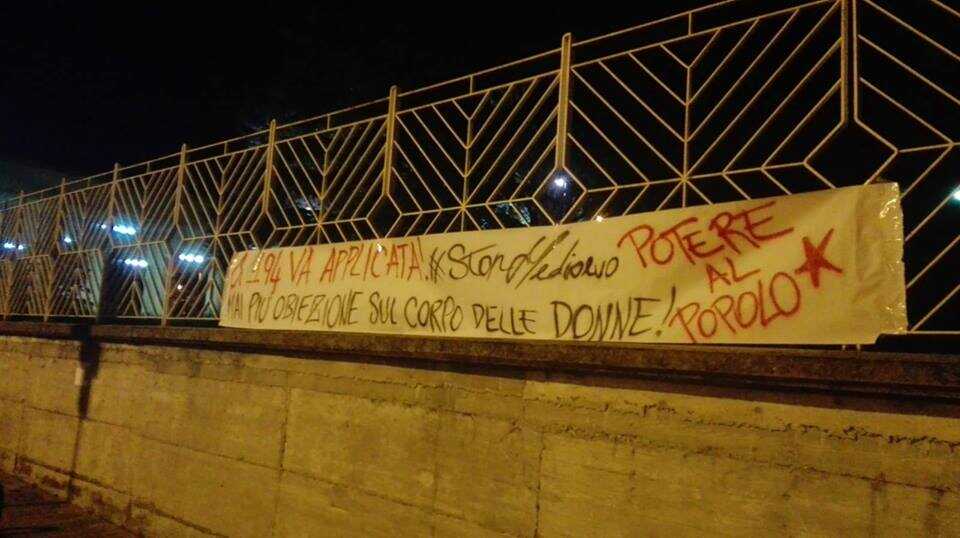 LA 194 VA APPLICATA! #StopMedioevo
MAI PIÙ OBIEZIONE SUL CORPO DELLE DONNE!
POTERE
AL
POPOLO